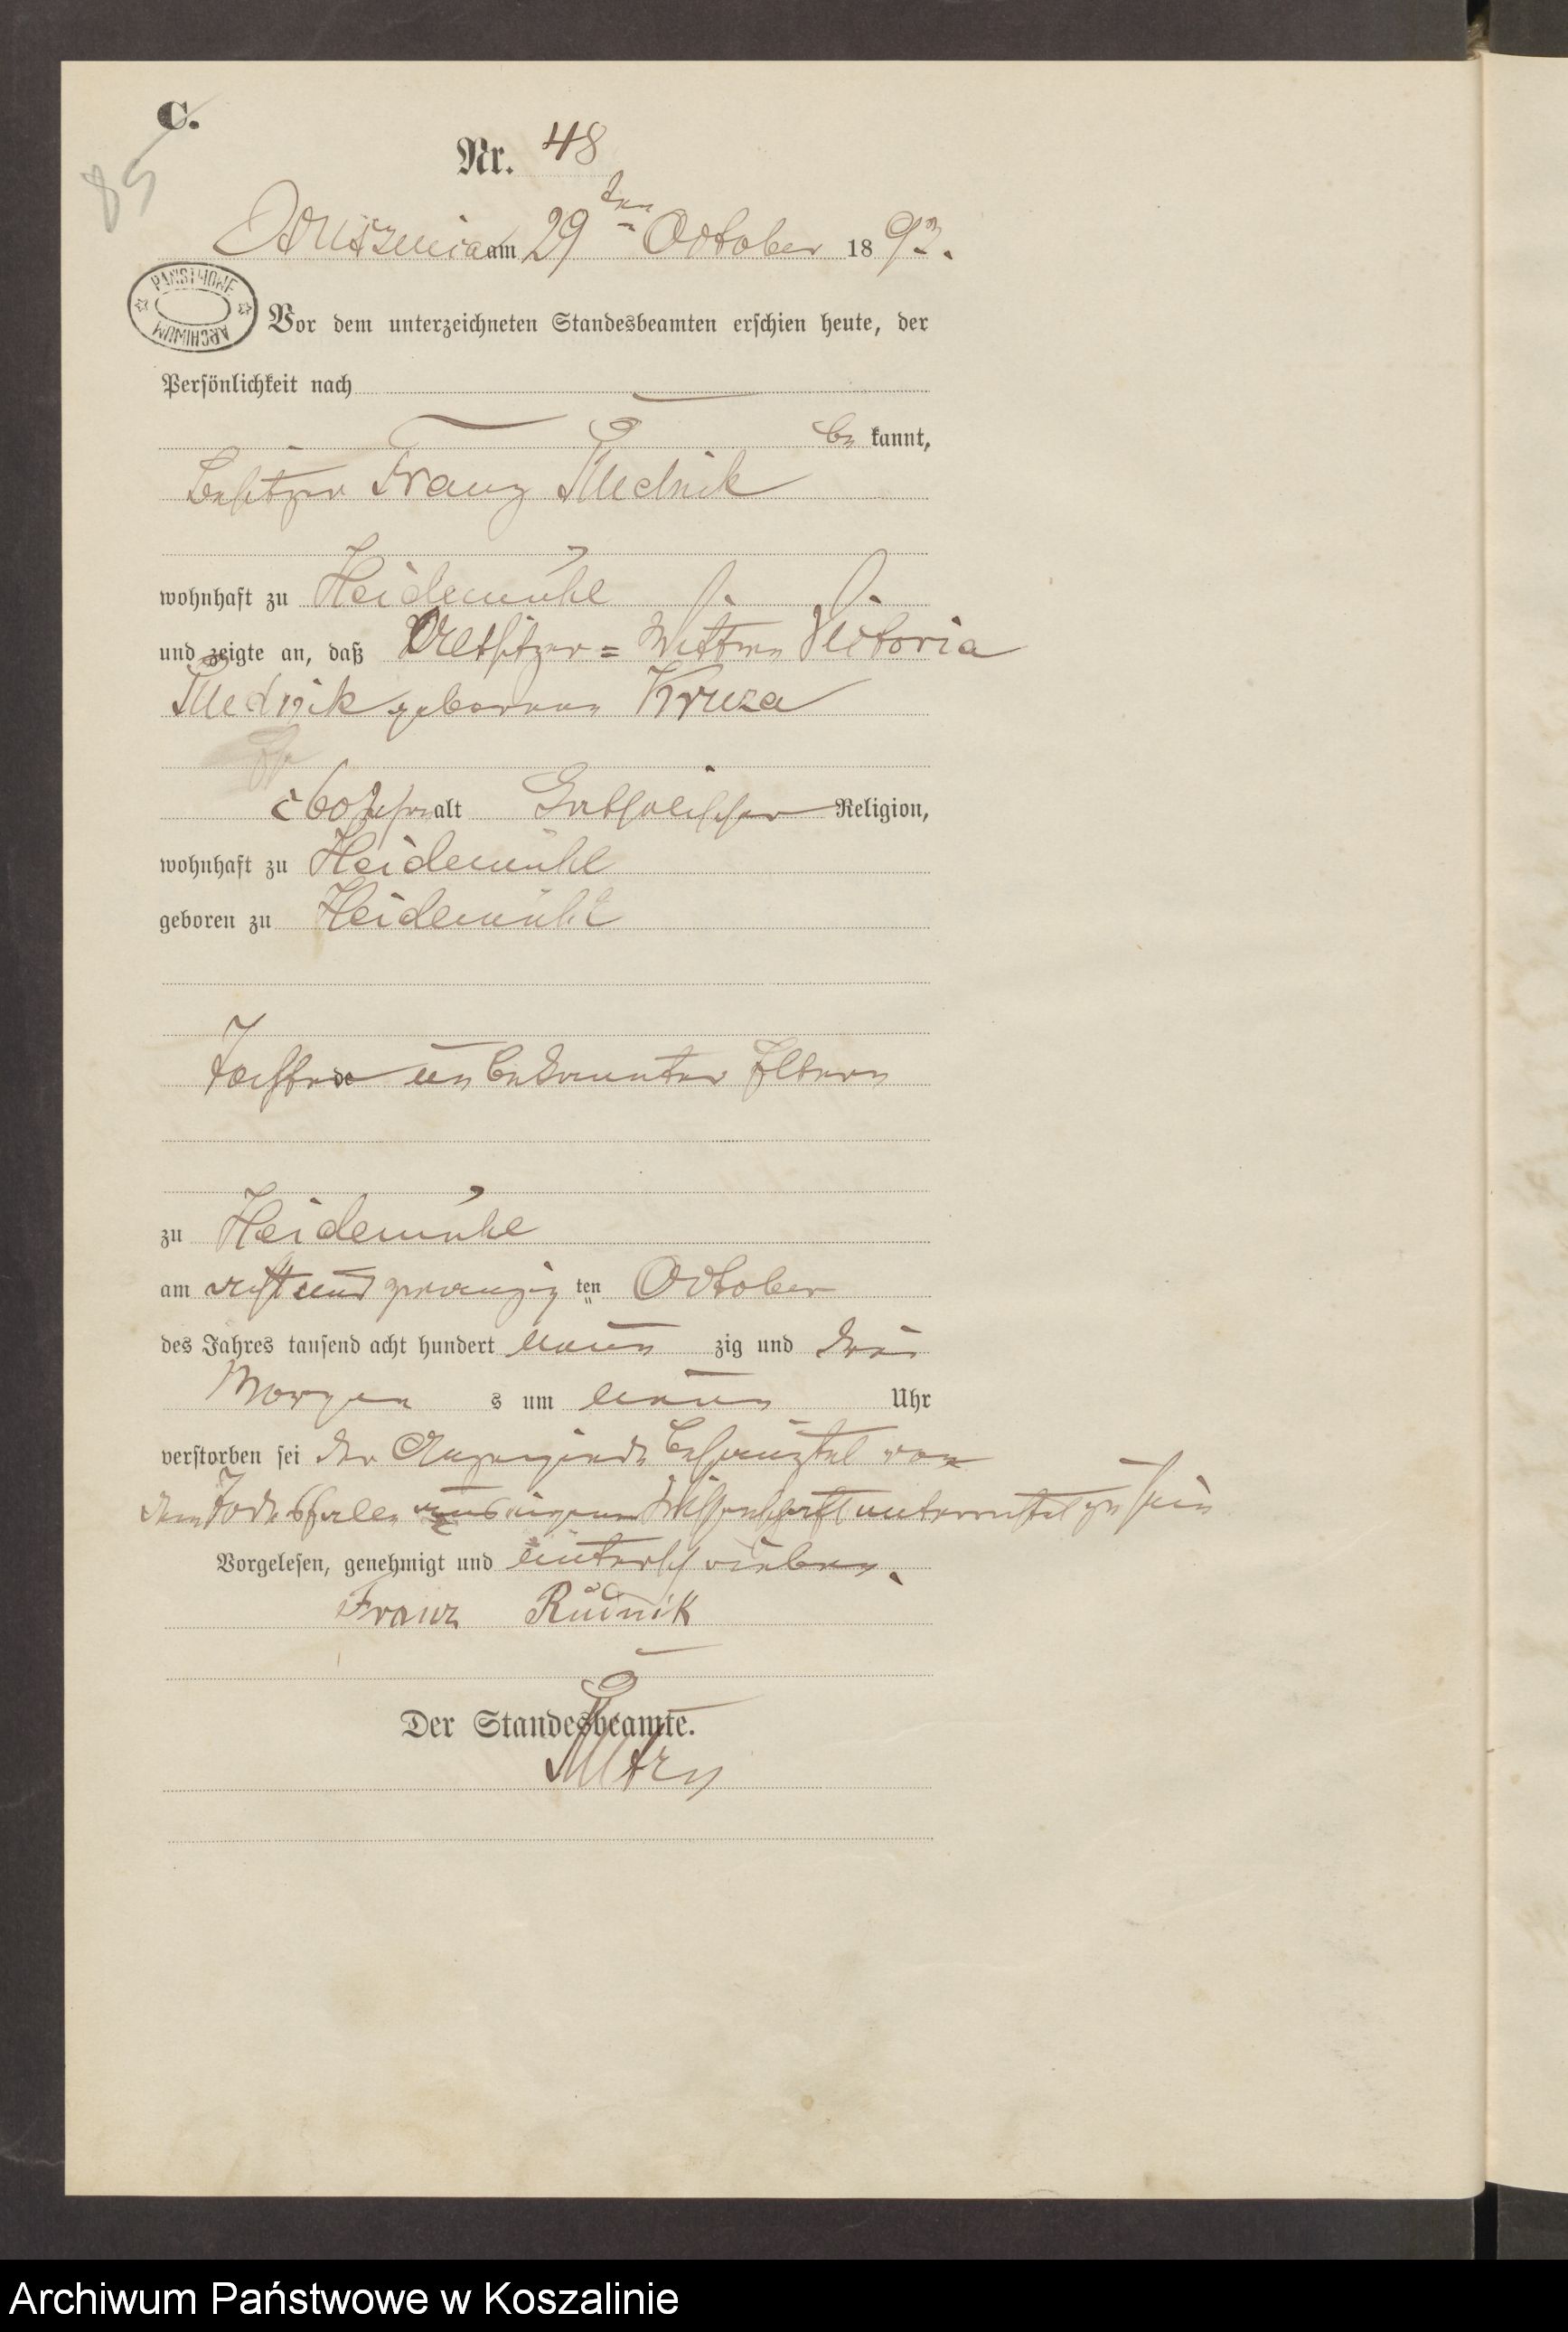 C.
85
Nr. 48
am 29ten October 1893.
PAŃSTWOWE ARCHIWUM
Vor dem unterzeichneten Standesbeamten erschien heute, der
Persönlichkeit nach
be kannt,
Besitzer Franz Rudnik
wohnhaft zu Heidemühl
und zeigte an, daß Altsitzer= Wittwe Victoria
Rudnik geborene Kruza
60 Jahre alt katholischer Religion,
wohnhaft zu Heidemühl
geboren zu Heidemühl
Tochter unbekannter Eltern
zu Heidemühl
am acht und zwanzig ten October
des Jahres tausend acht hundert neun zig und drei
Morgen s um neun Uhr
verstorben sei der Anzeigende von
dem Todesfalle aus eigener Wissenschaft unterrichtet zu sein
Vorgelesen, genehmigt und unterschrieben.
Franz Rudnik
Der Standesbeamte.
Archiwum Państwowe w Koszalinie